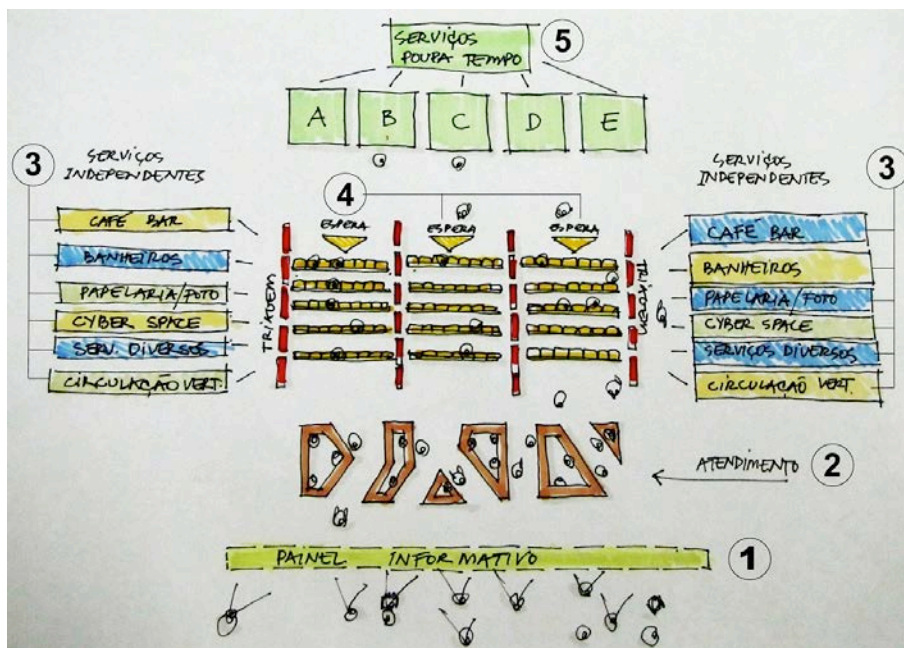 SERVIÇOS
POUPA TEMPO
5
A
B
C
D
E
3
SERVIÇOS
INDEPENDENTES
CAFÉ BAR
BANHEIROS
PAPELARIA/FOTO
CYBER SPACE
SERV. DIVERSOS
CIRCULAÇÃO VERT.
4
ESPERA
ESPERA
ESPERA
TRIAGEM
TRIAGEM
3
SERVIÇOS
INDEPENDENTES
CAFÉ BAR
BANHEIROS
PAPELARIA/FOTO
CYBER SPACE
SERVIÇOS DIVERSOS
CIRCULAÇÃO VERT.
ATENDIMENTO
2
PAINEL INFORMATIVO
1